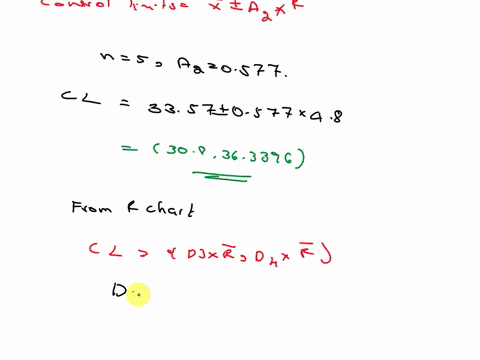 Control limits = x̄ ± A₂ × R
n = 5, A₂ = 0.577.
CL = 33.57 ± 0.577 × 4.8
= (30.8, 36.3396)
From R chart
CL > (D3 × R̄, D4 × R̄)
D.